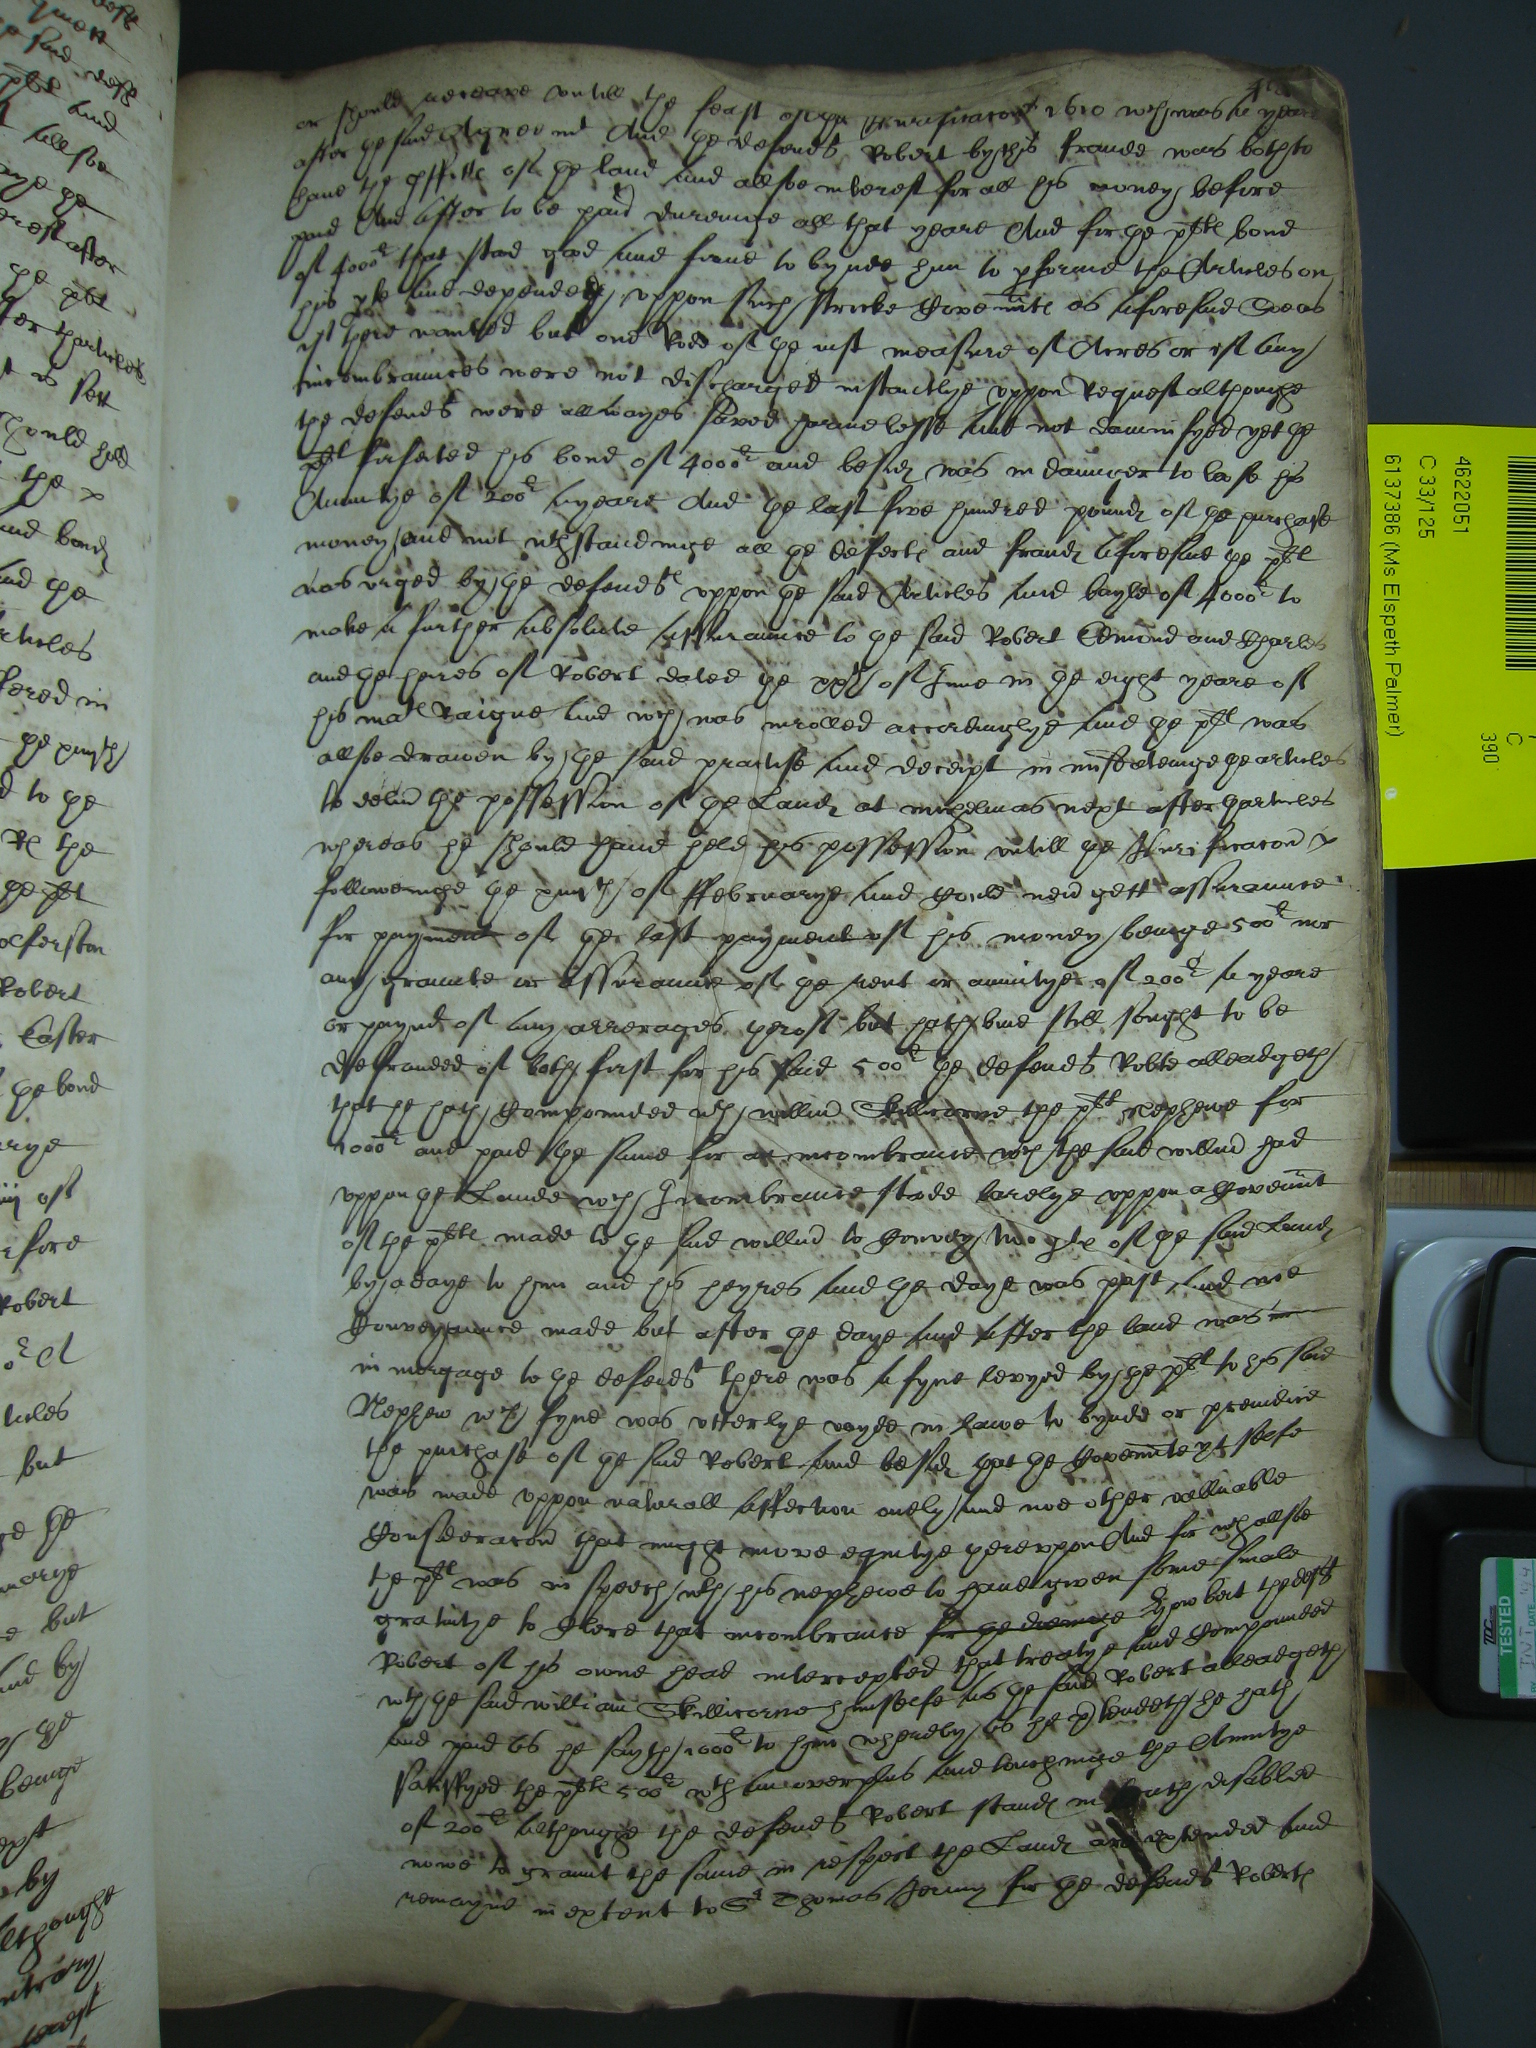 or should receave untill the feast of the Purificacon 1610 wch was a yeare
after the said Agreemt And the defendt Robert by this fraude was both to
have the proffitts of the land and allsoe interest for all his money before
paid And after to be paid dureinge all that yeare And for the plts bond
of 4000l that stood good and firme to bynde him to pforme the Articles on
his pte and depended uppon such stricte Covennts as aforesaid Soe as
yf there wanted but one Rodd of the iust measure of Acres or yf any
incombraunces were not discharged instantlye uppon Request althoughe
the defendt were allwayes saved harmelesse and not damnifyed yet the
plt forfeited his bond of 4000l and besids was in daunger to loose his
Annuitye of 200l a yeare And the last five hundred pounds of the purchase
money and not wthstandinge all the defects and frauds aforesaid the plt
was urged by the defendts uppon the said Articles and bayle of 4000l to
make a further absolute assuraunce to the said Robert Edmond and Charles
and the heires of Robert dated the xxth of June in the eight yeare of
his mats Raigne and wch was inrolled accordinglye and the plt was
allsoe drawen by the said practise and deceipt in the articles
to delivr the possession of the Lands at michelmas next after tharticles
whereas he should have held his possession untill the Purificacon
followeinge the of ffebruarye and could nevr gett assuraunce
for payment of the last payment of his money beinge 500l nor
any graunte or assuraunce of the rent or annuitye of 200l a yeare
or paymt of any arrerages therof but hath bine still sought to be
defrauded of both first for his said 500l the defendt Robte alleadgeth
that he hath Compounded wth willm Skillicorne the plts Nephewe for
1000l and paid the same for an incombrance wch the said willm had
uppon the Lande wch Incombrance stode barelye uppon a Covennt
of the plts made to the said willm to Convey two pts of the said Lands
by a daye to him and his heyres and the daye was past and noe
Conveyaunce made but after the daye and after the land was in
in morgage to the defendt there was a fyne levyed by the plt to his said
Nephew wch fyne was utterlye voyde in lawe to bynde or preiudice
the purchase of the said Robert and besids that the Covennte yt selfe
was made uppon naturall affection onely and noe other valluable
Consideracon that might move equitye thereuppon And for wch allsoe
the plt was in speech wth his nephewe to have given some smale
gratuitye to Clere that incombrance for the Howbeit the deft
Robert of his owne head intercepted that treatye and Compounded
wth the said william Skillicorne himselfe as the said Robert alleadgeth
and paid as he sayth 1000l to him whereby as he ptendeth he hath
satisfyed the plts 500l wth an overplus and touchinge the Annuitye
of 200l althoughe the defendt Robert stands in hath disabled
nowe to graunt the same in respect the Lands are extended and
remayne in extent to Sr Thomas Jermy for the defendt Roberts
4622051
C 33/125
6137386 (Ms Elspeth Palmer)
C
390
TESTED